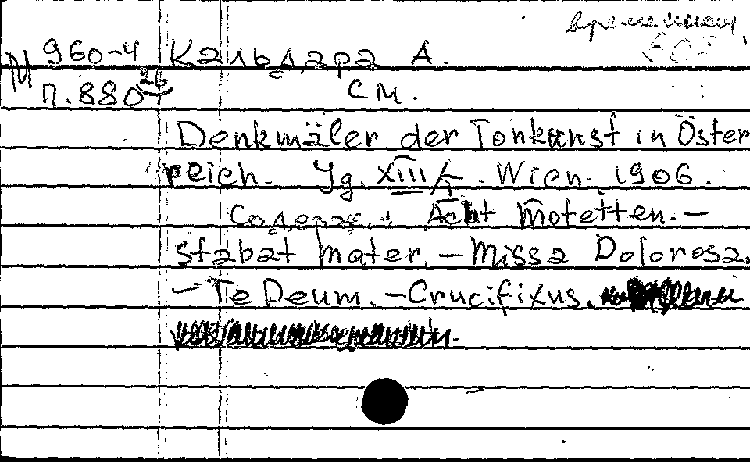 временный
М 960-4 Кальдара А.
П.880 см.
Denkmäler der Tonkunst in Öster
reich. Jg. XIII/I. Wien. 1906.
Содерж.: Acht Motetten. —
Stabat Mater. — Missa Dolorosa.
— Te Deum. — Crucifixus.